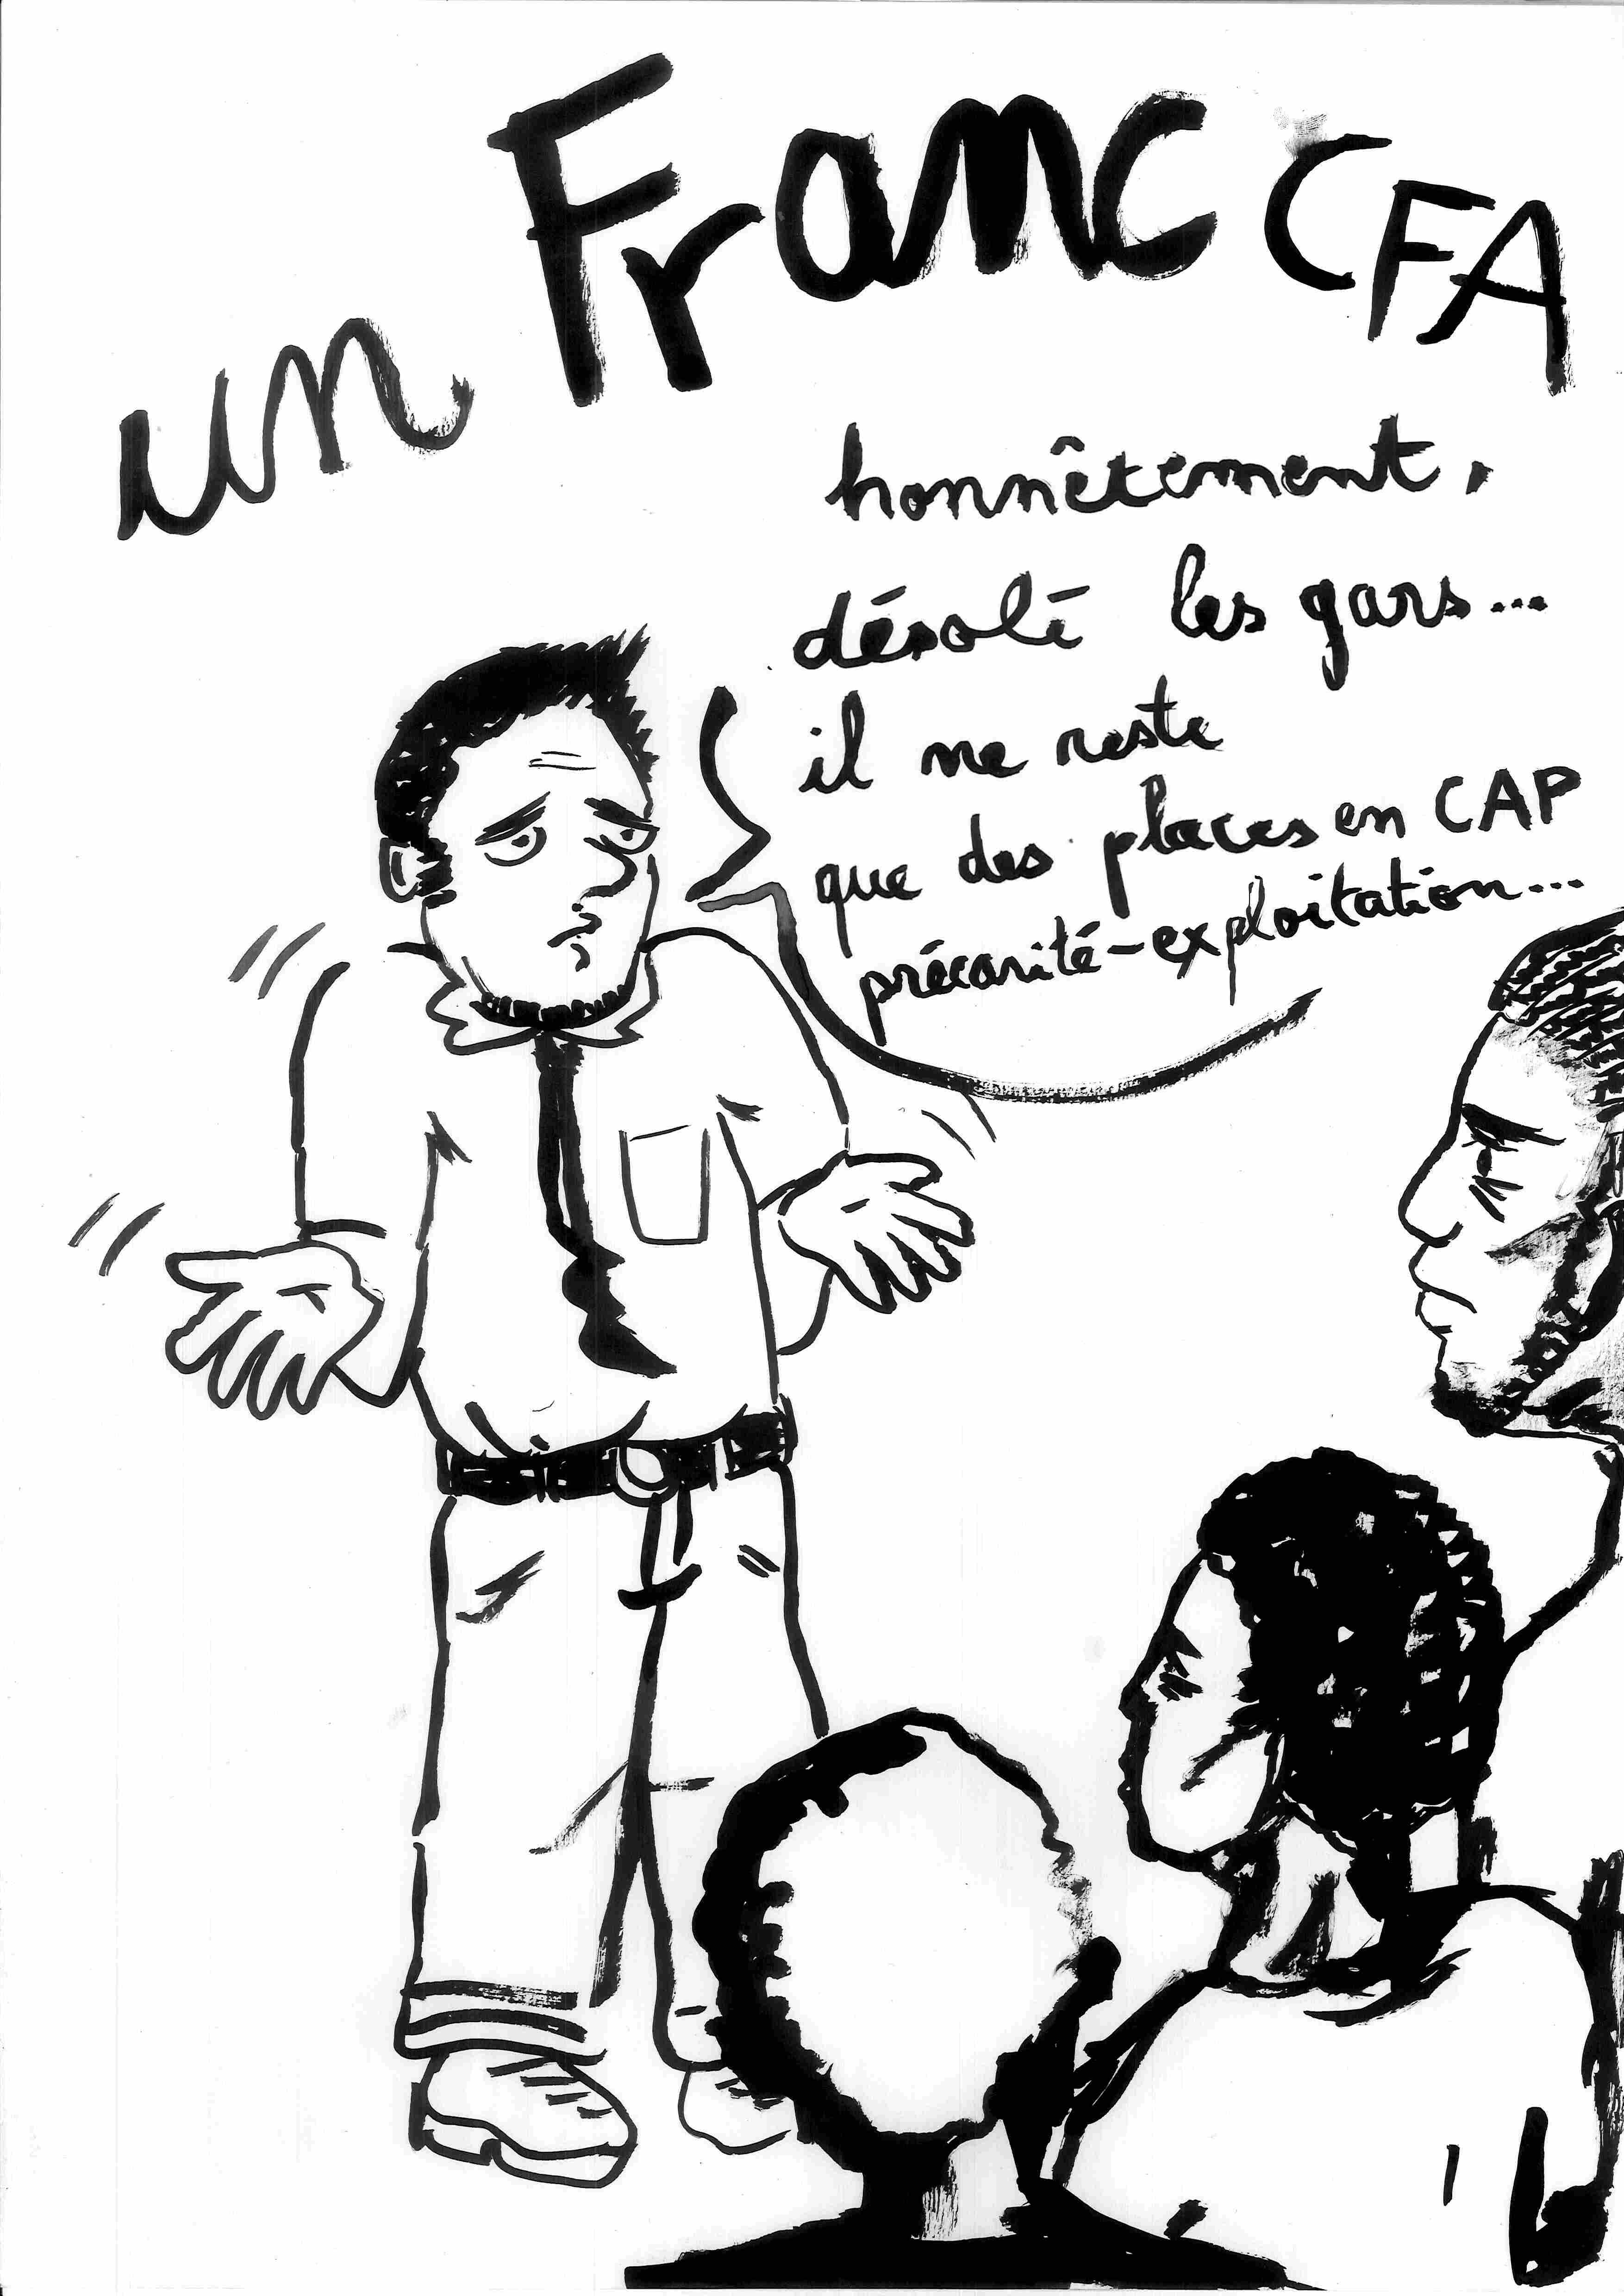 un Franc CFA
honnêtement,
désolé les gars...
il me reste
que des places en CAP
précarité-exploitation...